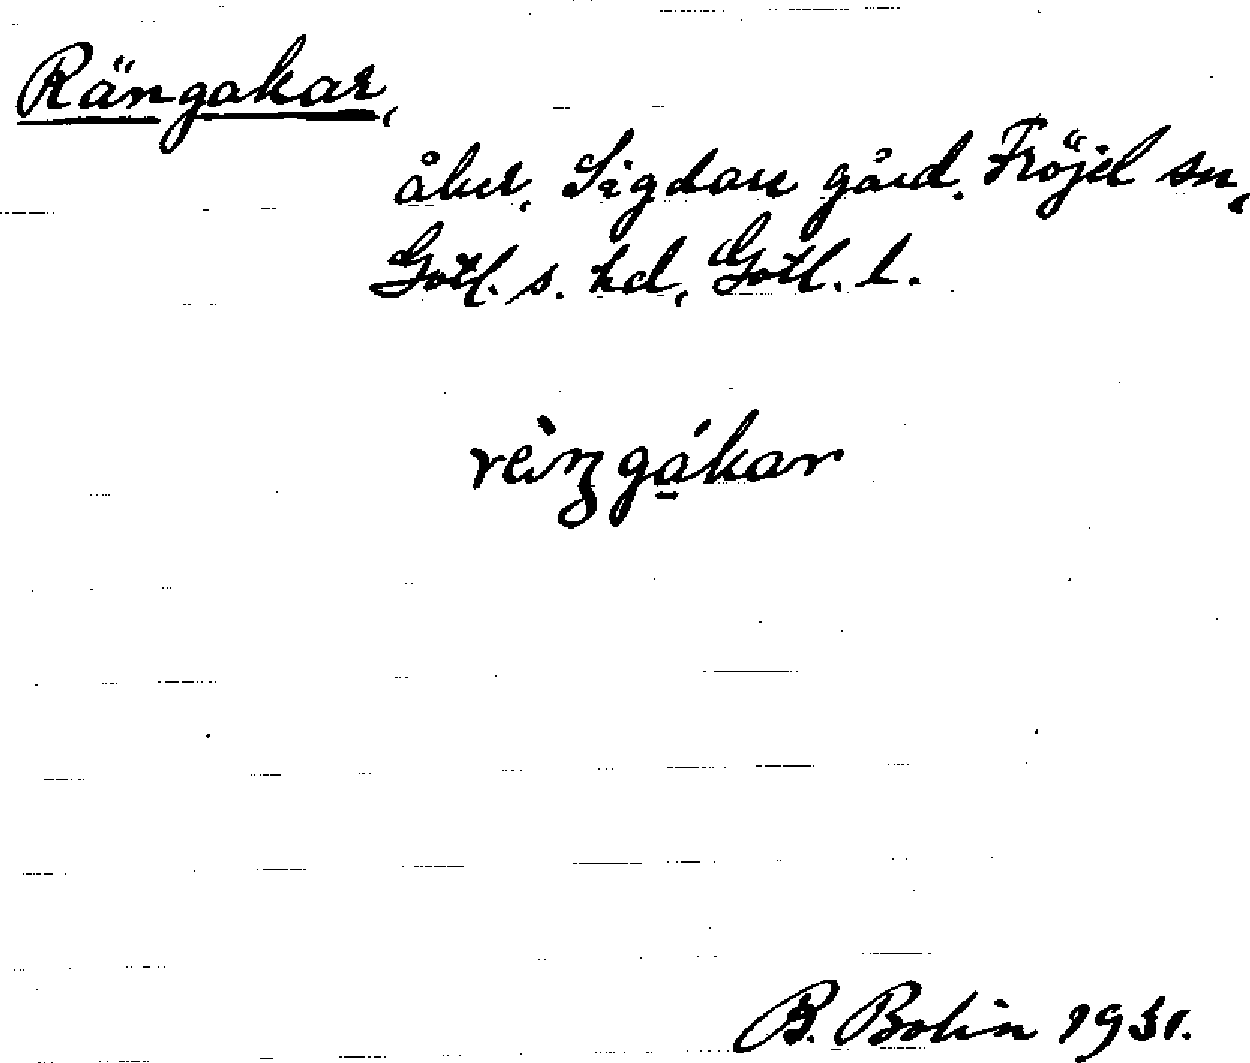 Rängakar,
åker, Sigdare gård, Fröjel sn,
Gotl. s. hd, Gotl. l.
B. Bolin 1931.